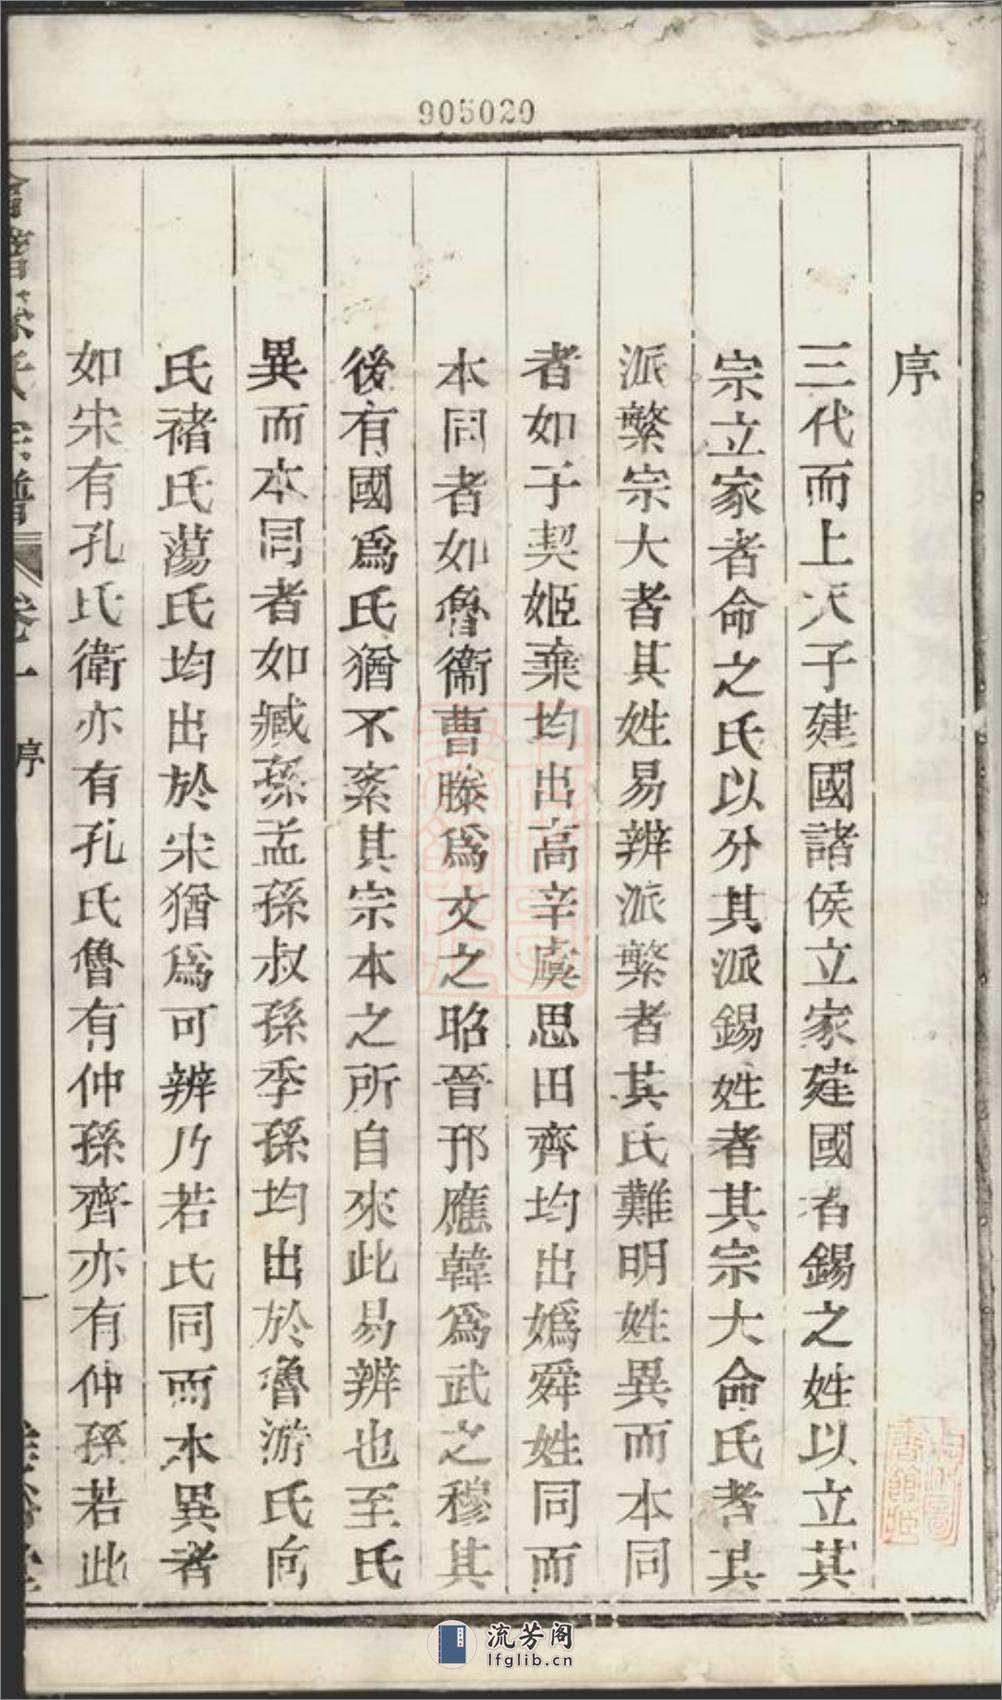 905029
序
三代而上天子建國諸侯立家建國者錫之姓以立其
宗立家者命之氏以分其派錫姓者其宗大命氏者其
派繁宗大者其姓易辨派繁者其氏難明姓異而本同
者如子契姬棄均出高辛虞思田齊均出嬀舜姓同而
本同者如魯衞曹滕爲文之昭晉邘應韓爲武之穆其
後有國爲氏猶不紊其宗本之所自來此易辨也至氏
異而本同者如臧孫孟孫叔孫季孫均出於魯游氏向
氏褚氏蕩氏均出於宋猶爲可辨乃若氏同而本異者
如宋有孔氏衛亦有孔氏魯有仲孫齊亦有仲孫若此
氏宗譜 卷一 序 一
流芳阁
lfglib.cn